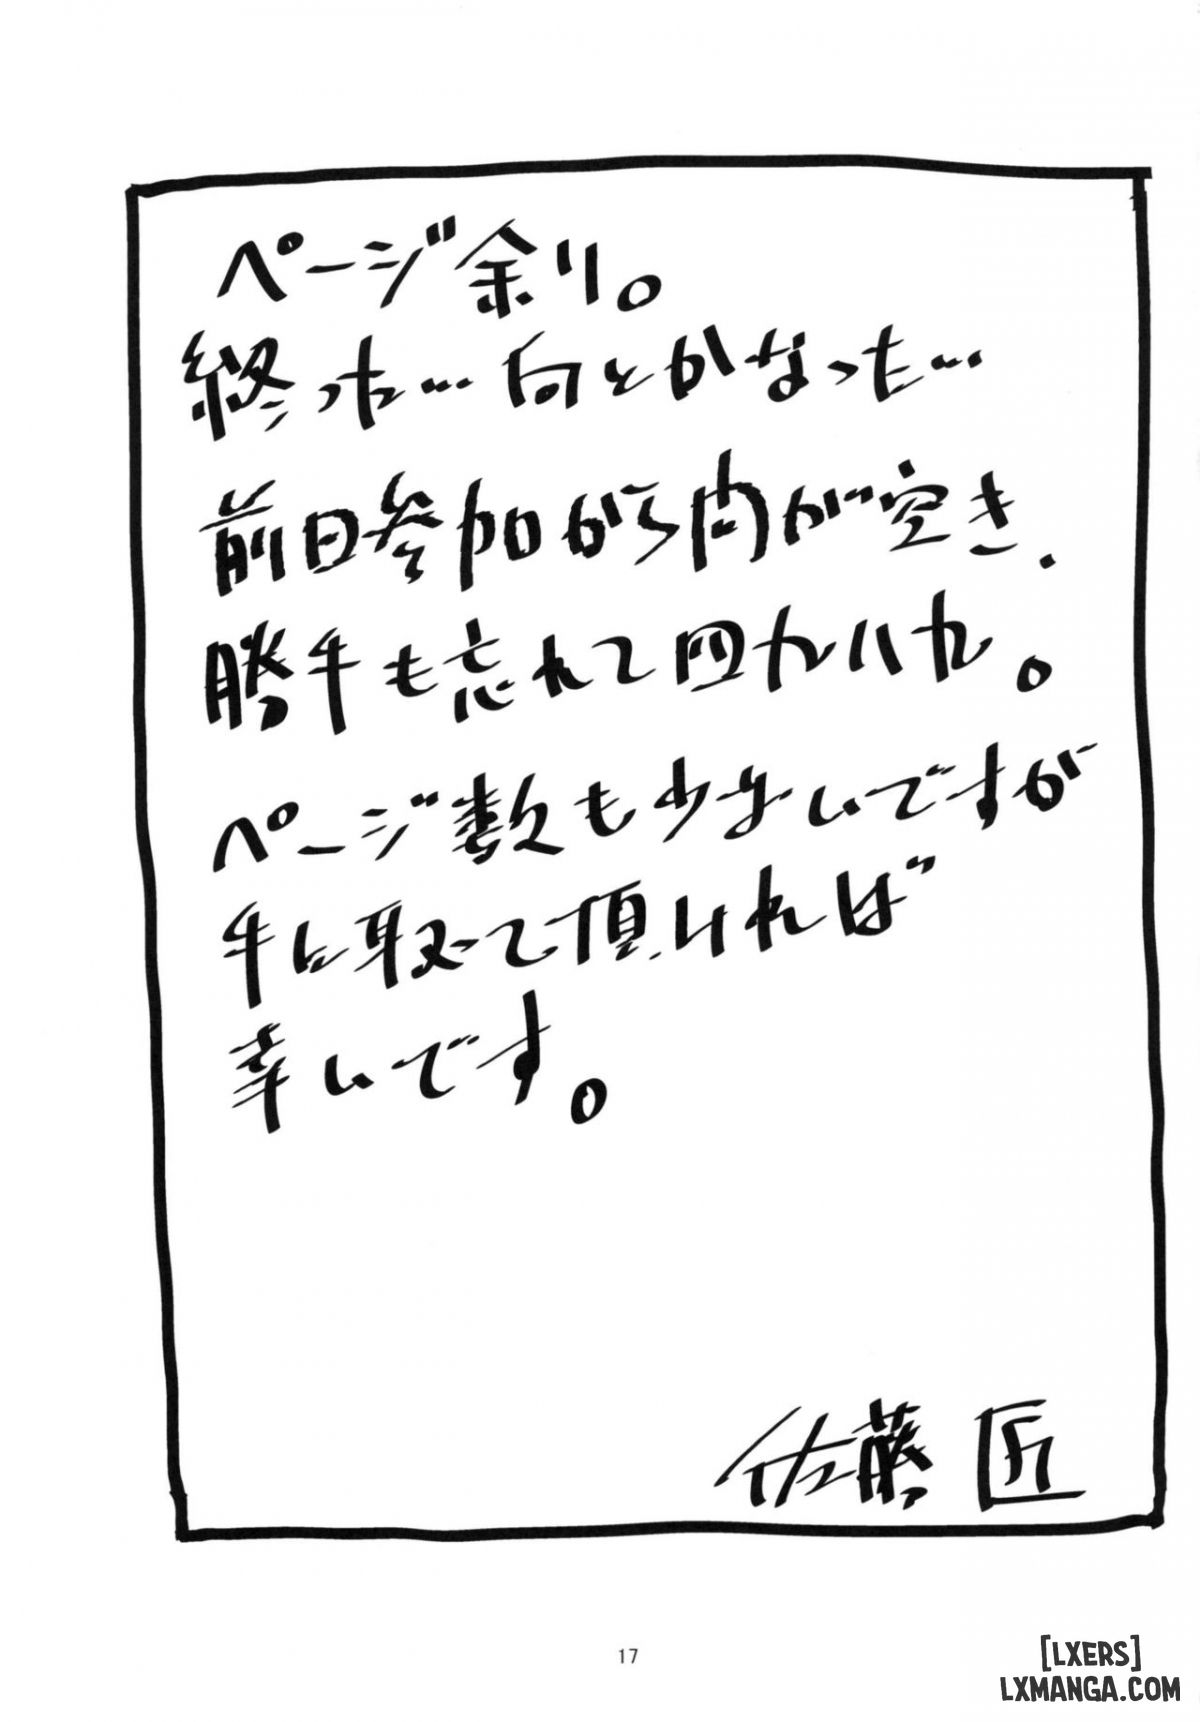 ページ余り。
終った…何とかなった…
前日参加から間が空き、
勝手も忘れて四九八九。
ページ数も少ないですが
手に取って頂ければ
幸いです。
佐藤 匠
17
[LXERS]
LXMANGA.COM